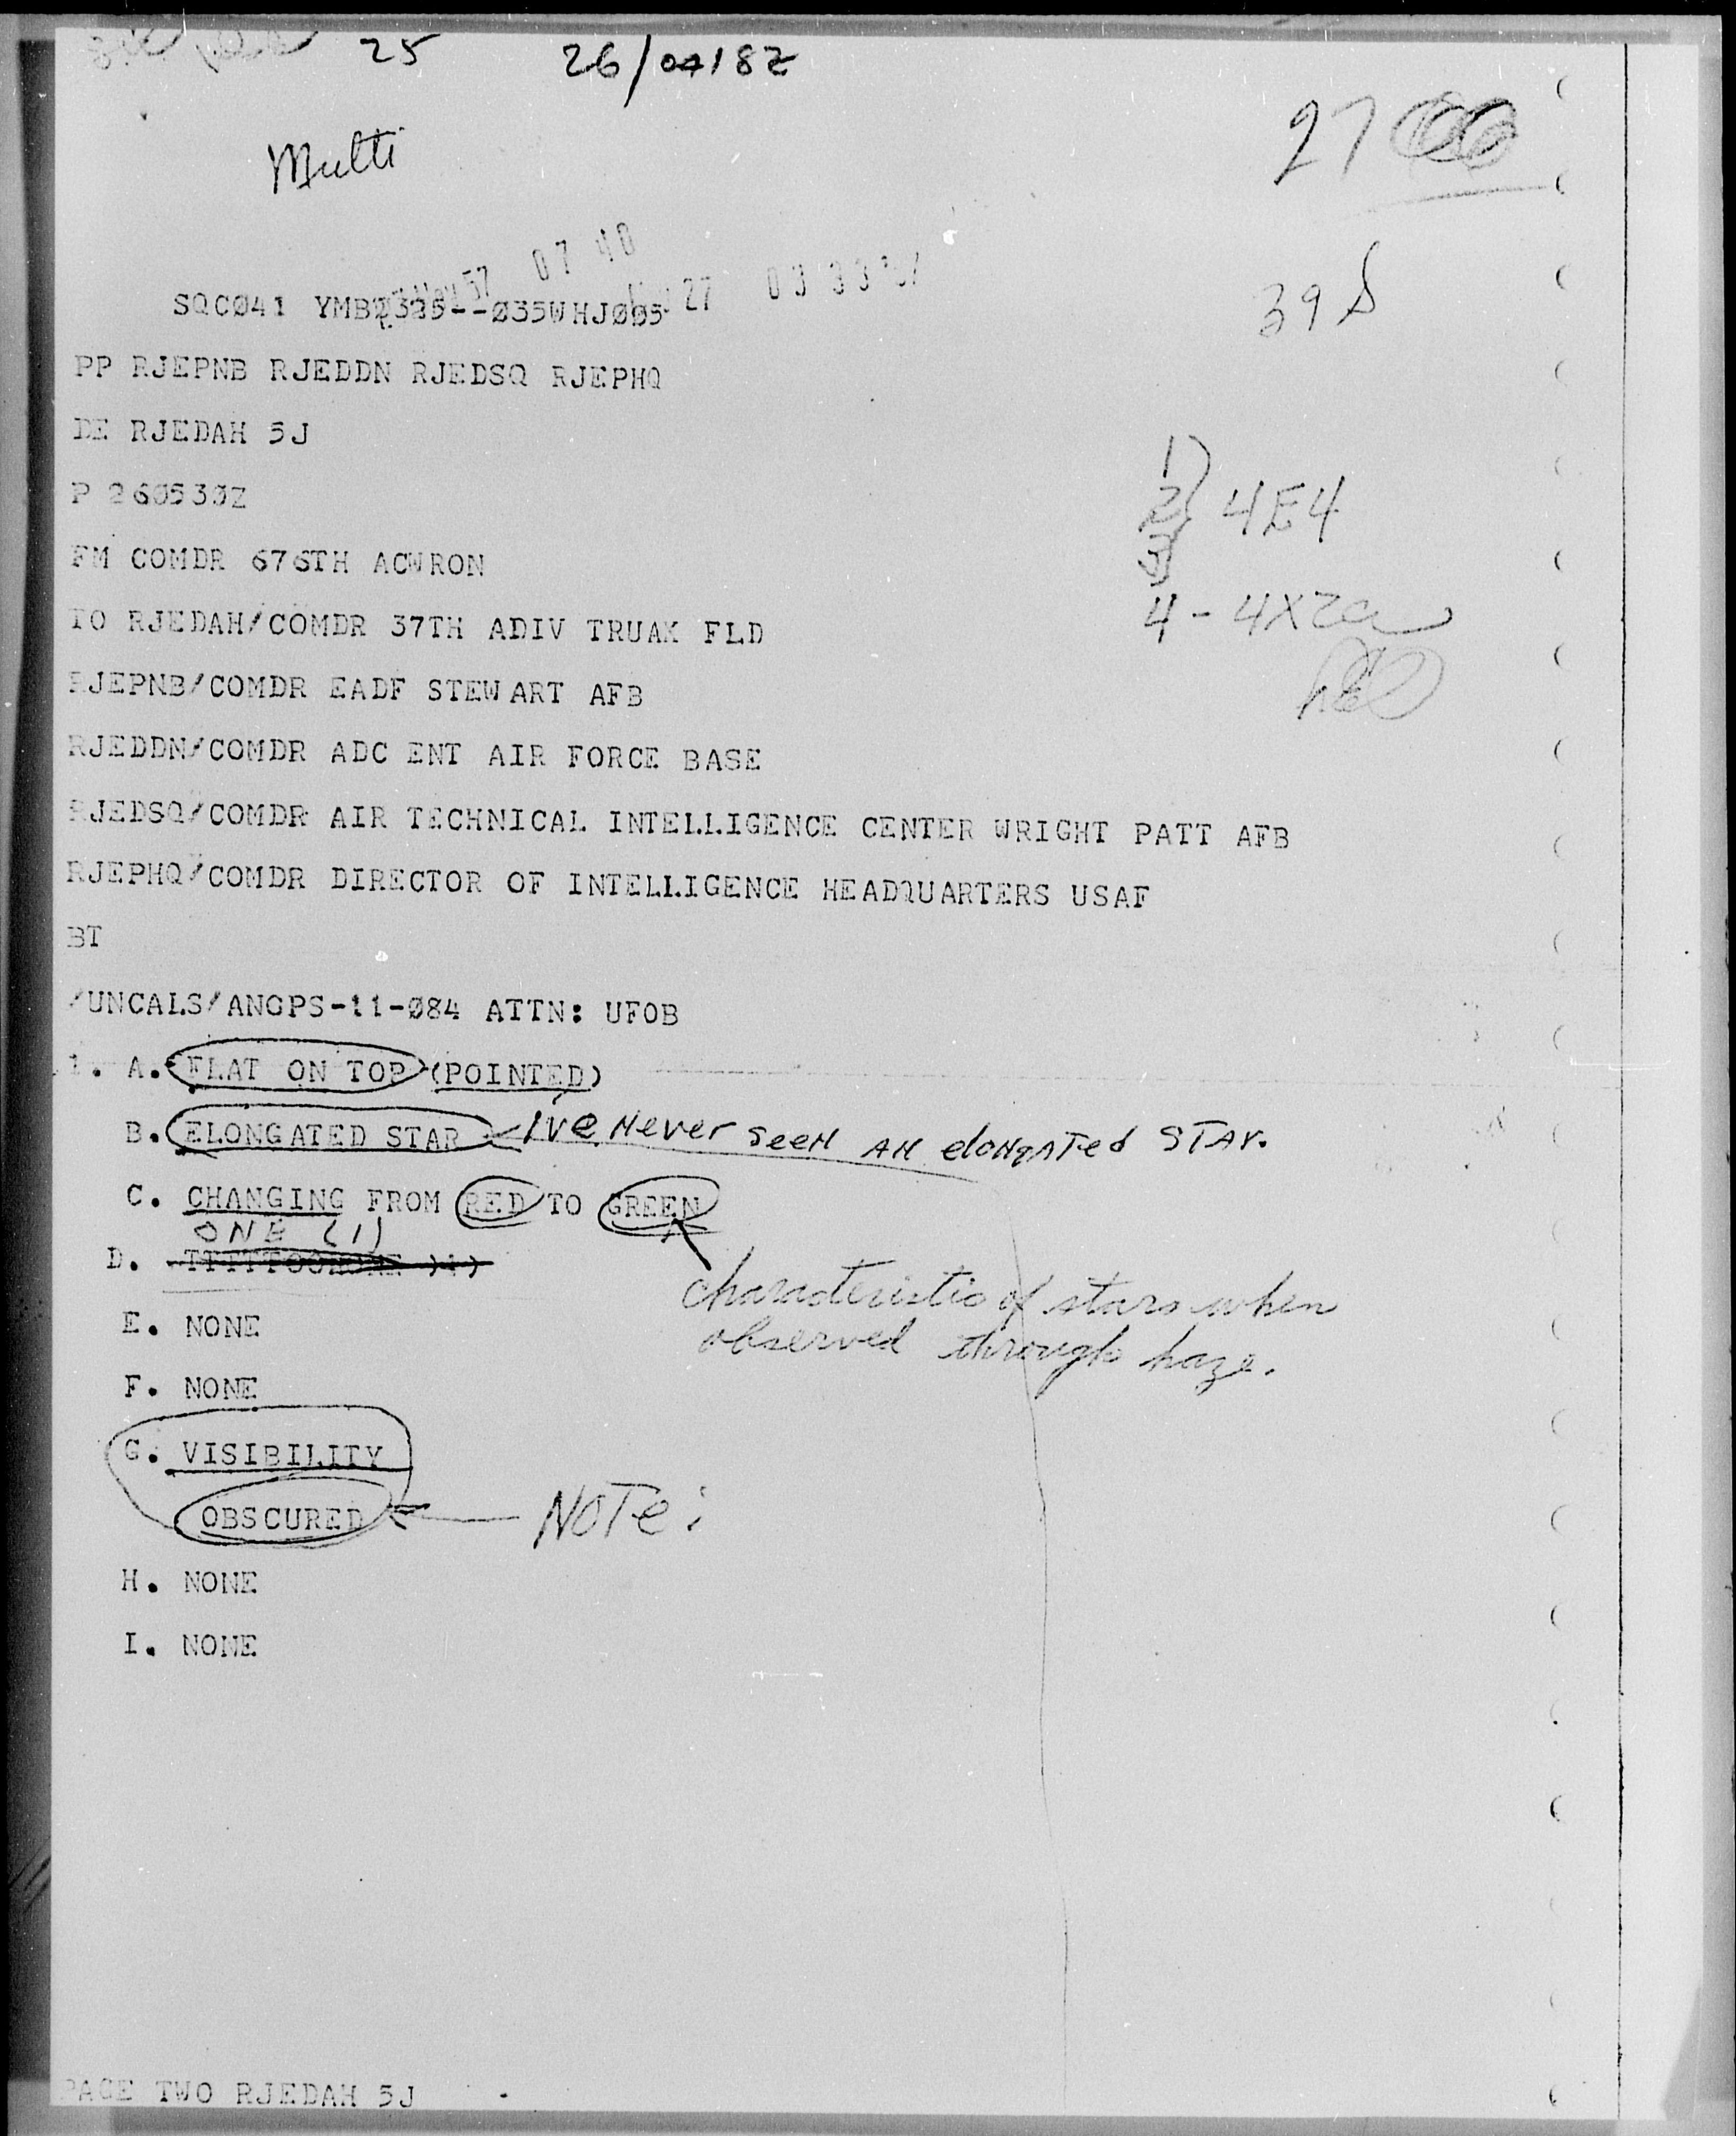 25 26/0418Z
Multi
27
57 07 40
27 03 33 '57
39 S
SQCØ41 YMB 325--Ø35WHJØØ5
PP RJEPNB RJEDDN RJEDSQ RJEPHQ
DE RJEDAH 5J
P 260530Z
FM COMDR 676TH ACWRON
TO RJEDAH/COMDR 37TH ADIV TRUAX FLD
RJEPNB/COMDR EADF STEWART AFB
RJEDDN/COMDR ADC ENT AIR FORCE BASE
RJEDSQ/COMDR AIR TECHNICAL INTELLIGENCE CENTER WRIGHT PATT AFB
RJEPHQ/COMDR DIRECTOR OF INTELLIGENCE HEADQUARTERS USAF
BT
1
2 } 4E4
3
4 - 4X2a
/UNCALS/ANGPS-11-Ø84 ATTN: UFOB
1. A. FLAT ON TOP (POINTED)
B. ELONGATED STAR I've Never seen AN elongated STAr.
C. CHANGING FROM RED TO GREEN
ONE (1)
D.
characteristic of stars when
observed through haze.
E. NONE
F. NONE
G. VISIBILITY
OBSCURED NOTe:
H. NONE
I. NONE
PAGE TWO RJEDAH 5J